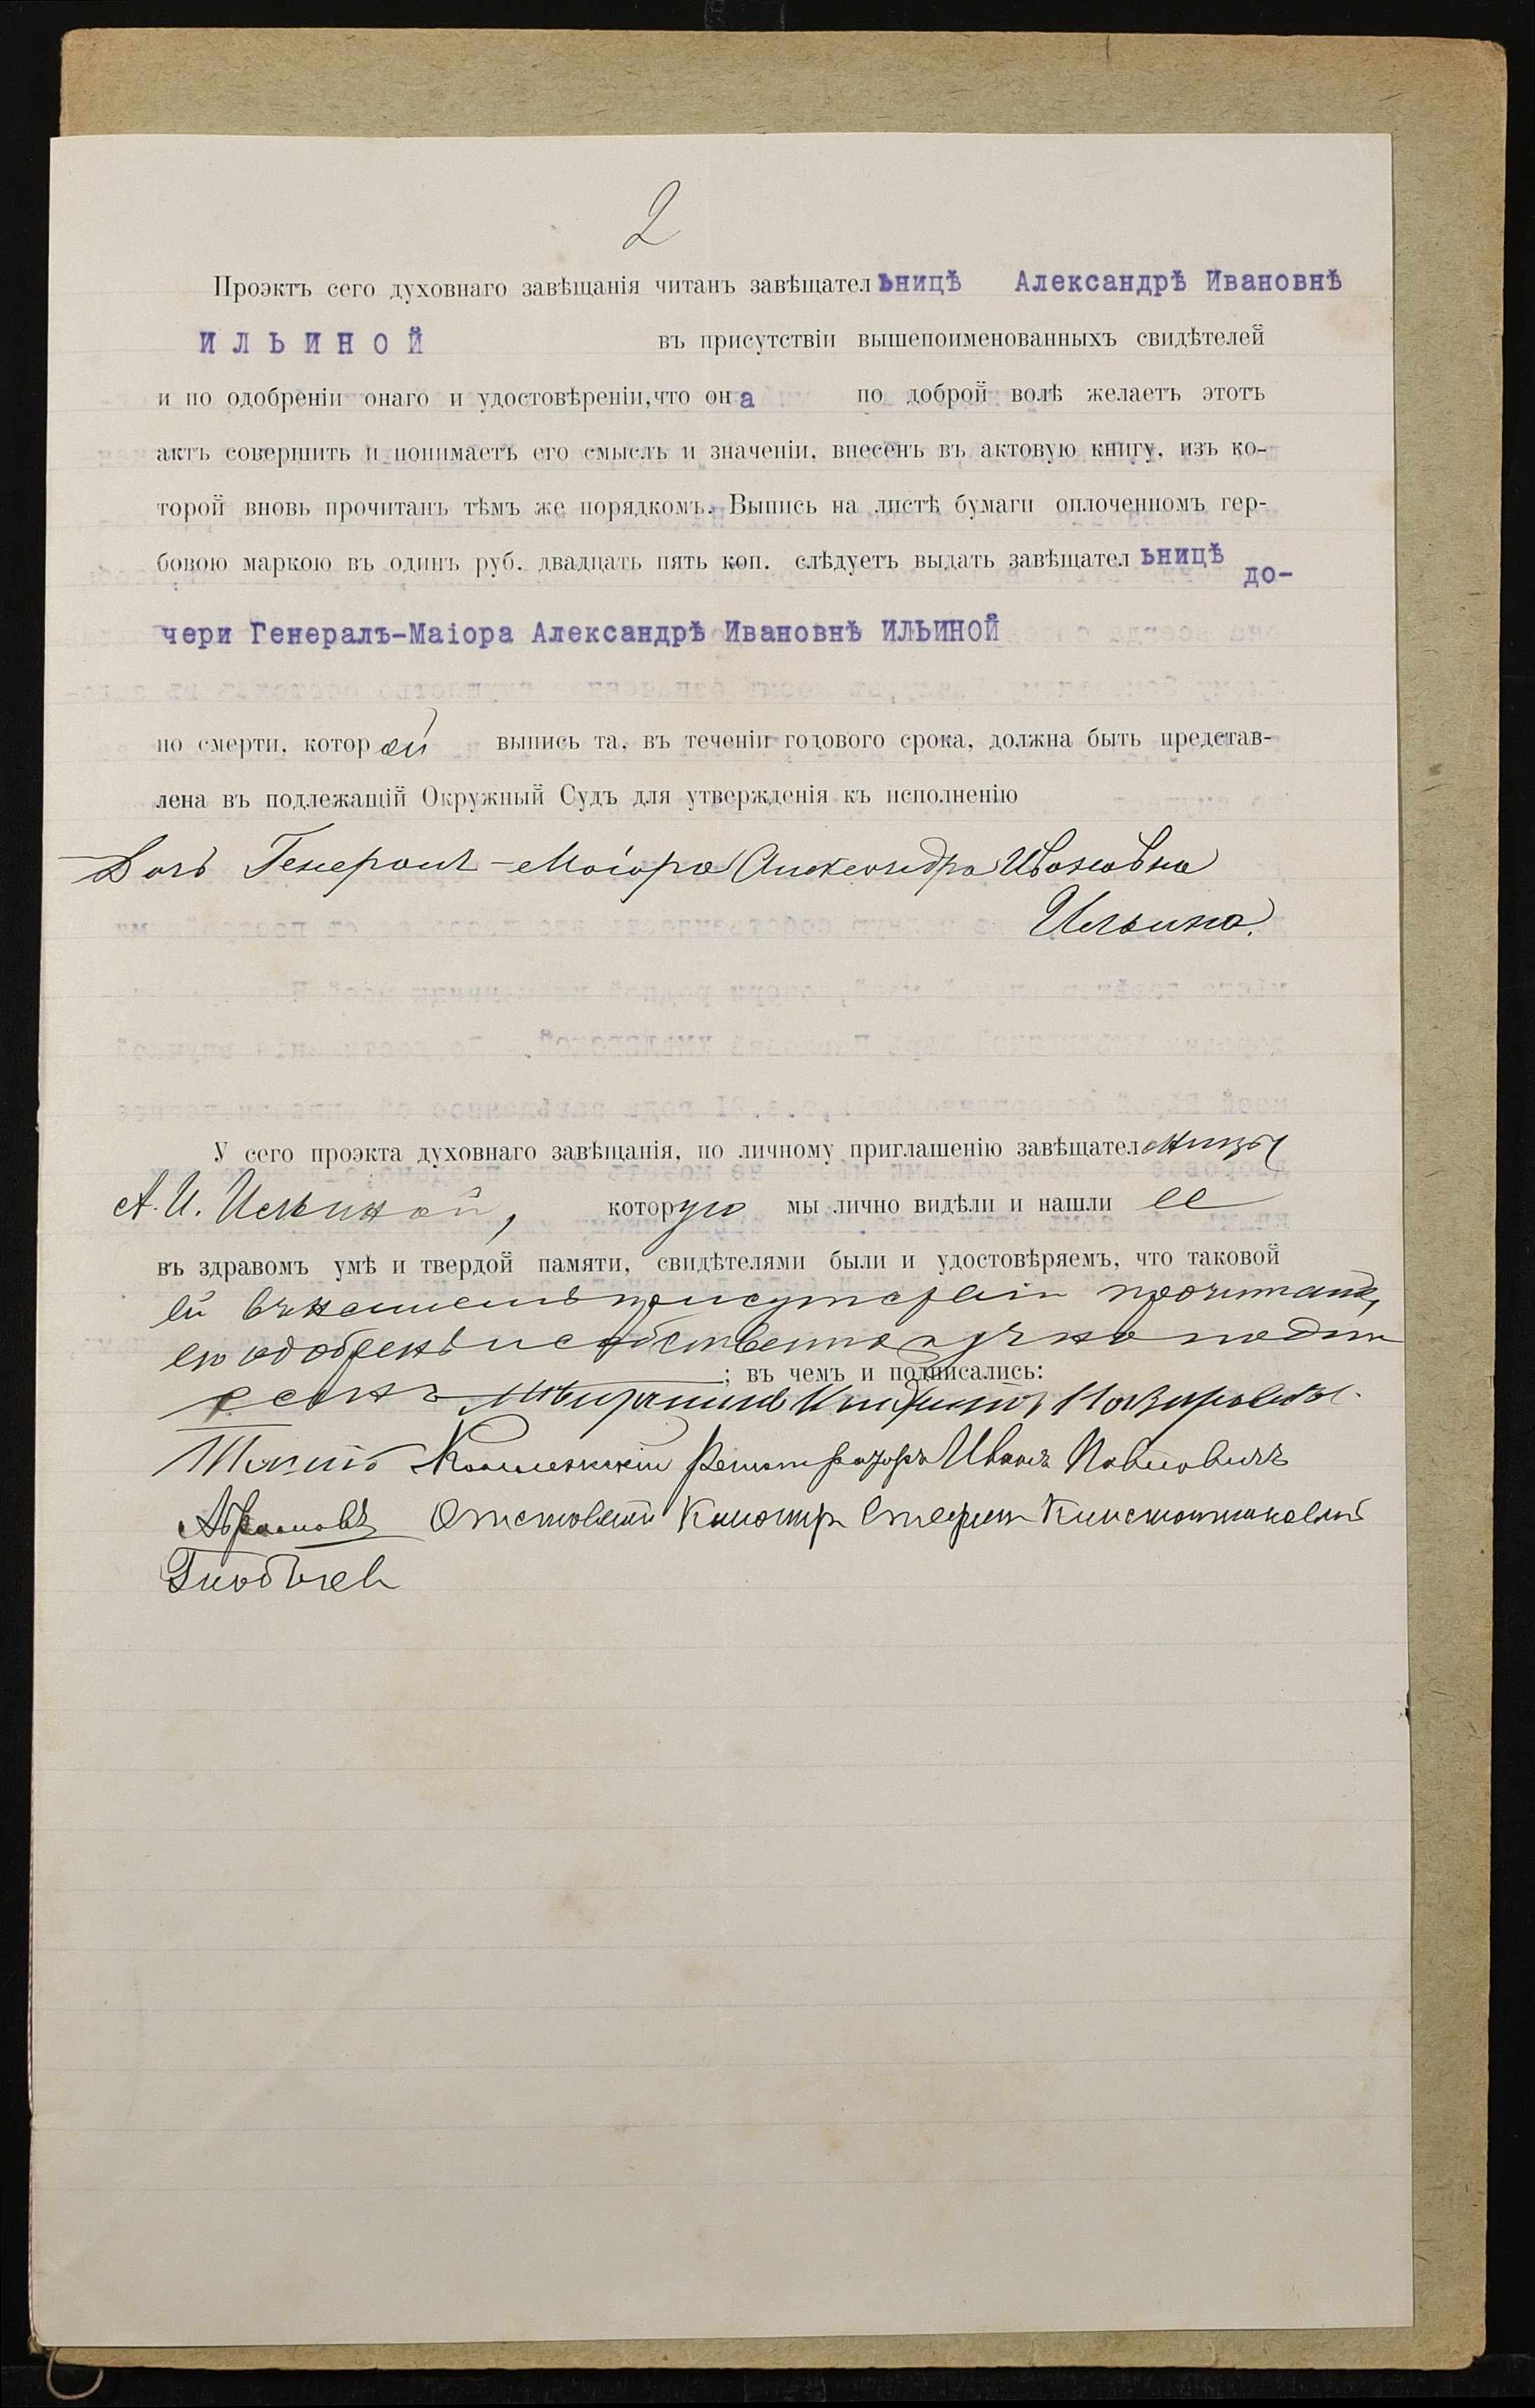 2
Проэктъ сего духовнаго завѣщанія читанъ завѣщательницѣ Александрѣ Ивановнѣ
ИЛЬИНОЙ въ присутствіи вышепоименованныхъ свидѣтелей
и по одобреніи онаго и удостовѣреніи, что она по доброй волѣ желаетъ этотъ
актъ совершить и понимаетъ его смыслъ и значеніи, внесенъ въ актовую книгу, изъ ко-
торой вновь прочитанъ тѣмъ же порядкомъ. Выпись на листѣ бумаги оплоченномъ гер-
бовою маркою въ одинъ руб. двадцать пять коп. слѣдуетъ выдать завѣщательницѣ до-
чери Генералъ-Маіора Александрѣ Ивановнѣ ИЛЬИНОЙ
по смерти, которой выпись та, въ теченіи годового срока, должна быть представ-
лена въ подлежащій Окружный Судъ для утвержденія къ исполненію
Дочь Генералъ-Маіора Александра Ивановна
Ильина.
У сего проэкта духовнаго завѣщанія, по личному приглашенію завѣщательницы
А. И. Ильиной, которую мы лично видѣли и нашли ее
въ здравомъ умѣ и твердой памяти, свидѣтелями были и удостовѣряемъ, что таковой
ей въ нашемъ присутствіи прочитанъ,
ею одобренъ и собственноручно подпи
санъ ; въ чемъ и подписались:
Коллежскій Регистраторъ Иванъ Павловичъ
Абрамовъ Отставной